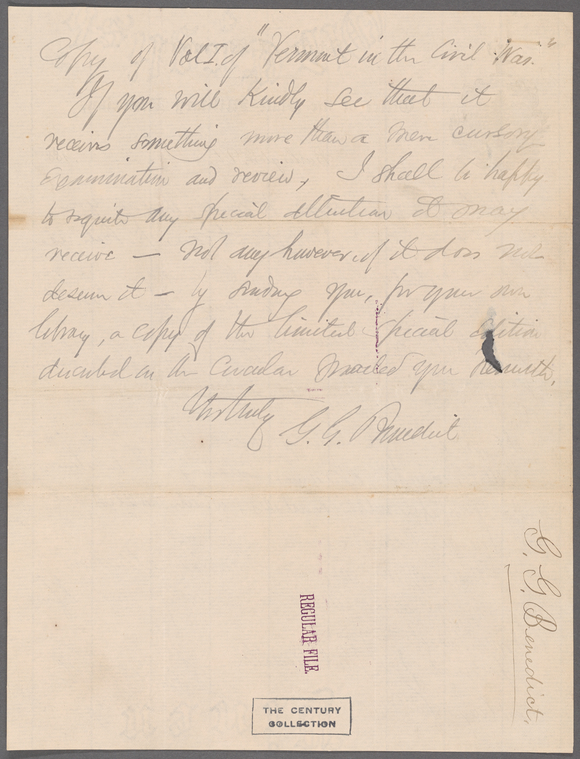 Copy of Vol I. of "Vermont in the Civil War."
If you will kindly see that it
receives something more than a mere cursory
examination and review, I shall be happy
to requite any special attention it may
receive — not any however, if it does not
deserve it — by sending you, for your own
library, a copy of the limited special edition
described in the circular mailed you herewith.
Yrs truly
G. G. Benedict
G. G. Benedict,
REGULAR FILE
THE CENTURY
COLLECTION